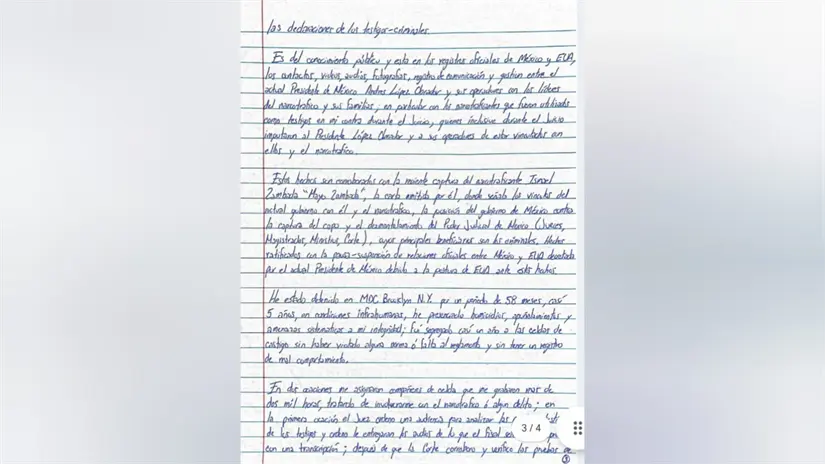 las declaraciones de los testigos-criminales.
Es del conocimiento público y esta en los registros oficiales de México y EUA,
los contactos, videos, audios, fotografias, registro de comunicación y gestion entre el
actual Presidente de México Andres López Obrador y sus operadores con los líderes
del narcotrafico y sus familias; en particular con los narcotraficantes que fueron utilizados
como testigos en mi contra durante el Juicio, quienes inclusive durante el Juicio
imputaron al Presidente López Obrador y a sus operadores de estar vinculados con
ellos y el narcotrafico.
Estos hechos son corroborados con la reciente captura del narcotraficante Ismael
Zambada "Mayo Zambada", la carta emitida por él, donde señala los vínculos del
actual gobierno con él y el narcotrafico, la posición del gobierno de México contra
la captura del capo y el desmantelamiento del Poder Judicial de Mexico (Jueces,
Magistrados, Ministros, Corte), cuyos principales beneficiarios son los criminales. Hechos
ratificados con la pausa-suspensión de relaciones oficiales entre México y EUA decretada
por el actual Presidente de México debido a la postura de EUA ante estos hechos.
He estado detenido en MDC Brooklyn N.Y. por un periodo de 58 meses, casi
5 años, en condiciones infrahumanas, he presenciado homicidios, apuñalamientos y
amenazas a mi integridad; fuí segregado casi un año a las celdas de
castigo sin haber violado alguna norma ó falta al reglamento y sin tener un registro
de mal comportamiento.
En dos ocasiones me asignaron compañeros de celda que me grabaron mas de
dos mil horas, tratando de involucrarme con el narcotrafico ó algun delito; en
la primera ocasión el Juez ordeno una audiencia para analizar las
de los testigos y ordeno le entregaran los audios de lo que el fiscal
con una transcripción; después de que la Corte corroboro y verifico las pruebas de
3/4
3